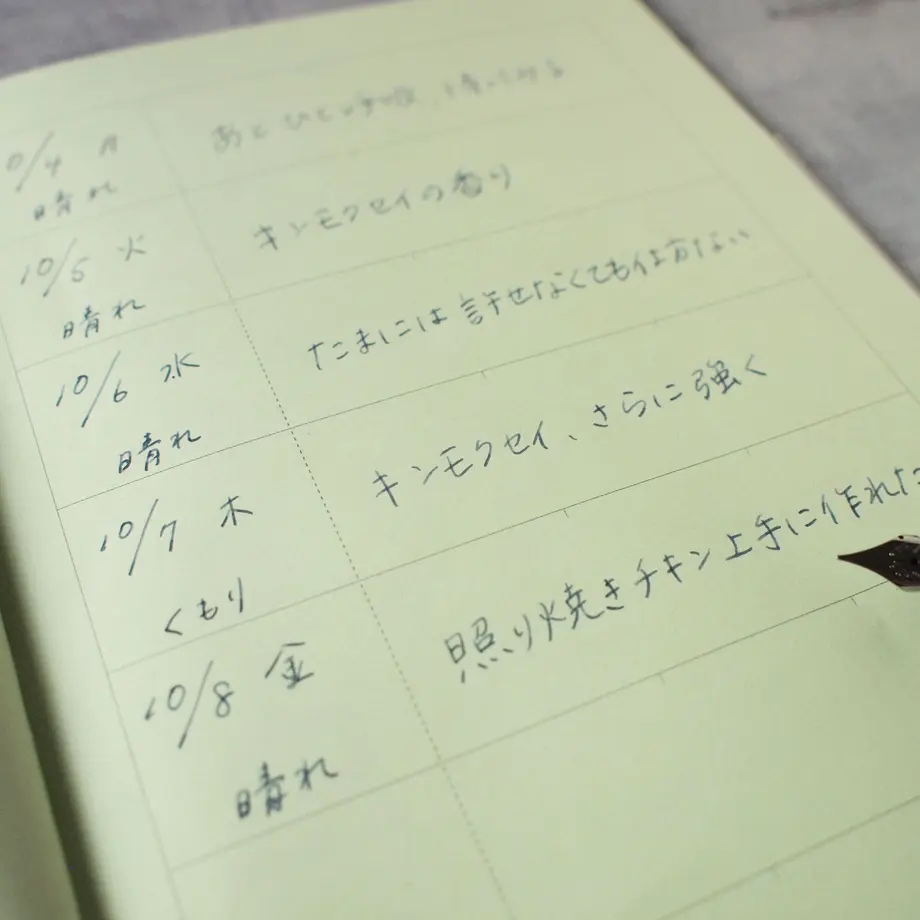 10/4 月
晴れ
あとひと呼吸、待ってみる
10/5 火
晴れ
キンモクセイの香り
10/6 水
晴れ
たまには許せなくても仕方ない
10/7 木
くもり
キンモクセイ、さらに強く
10/8 金
晴れ
照り焼きチキン上手に作れた